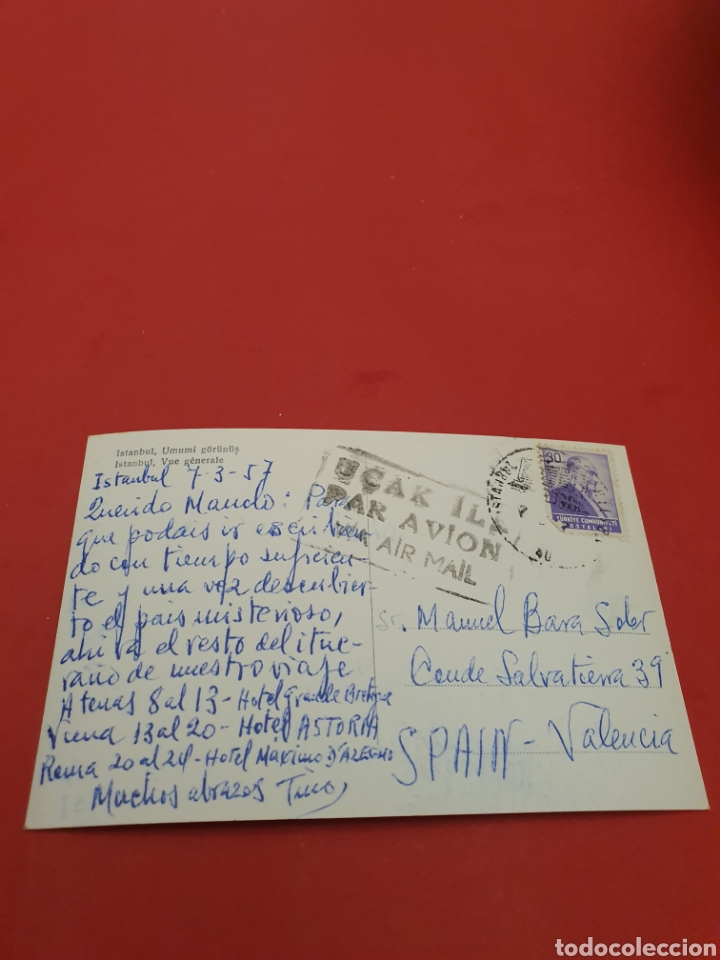 Istanbul, Umumi görünüş
Istanbul, Vue génerale
Istanbul 7-3-57
Querido Manolo: Para
que podais ir escribien
do con tiempo suficien-
te y una vez descubier-
to el pais misterioso,
ahi va el resto del itine-
rario de nuestro viaje
Atenas 8 al 13 - Hotel Grande Bretagne
Viena 13 al 20 - Hotel ASTORIA
Roma 20 al 24 - Hotel Maximo D'AZEGLIO
Muchos abrazos Tino
UÇAK ILE
PAR AVION
AIR MAIL
30
TÜRKIYE CUMHURIYETI
POSTALARI
Sr. Manuel Bara Soler
Conde Salvatierra 39
SPAIN - Valencia
todocoleccion